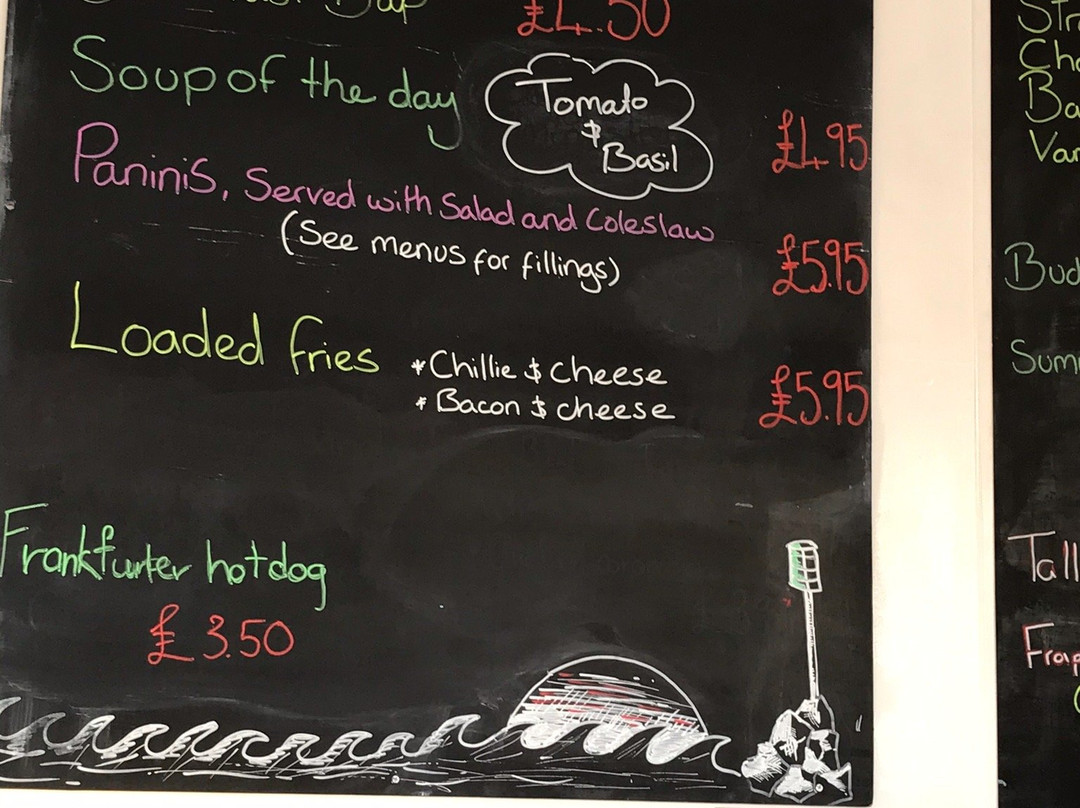 Bap £4.50
Soup of the day Tomato
& Basil £4.95
Paninis, Served with Salad and Coleslaw
(See menus for fillings) £5.95
Loaded fries *Chillie & cheese
* Bacon & cheese £5.95
Frankfurter hotdog
£3.50
Tall